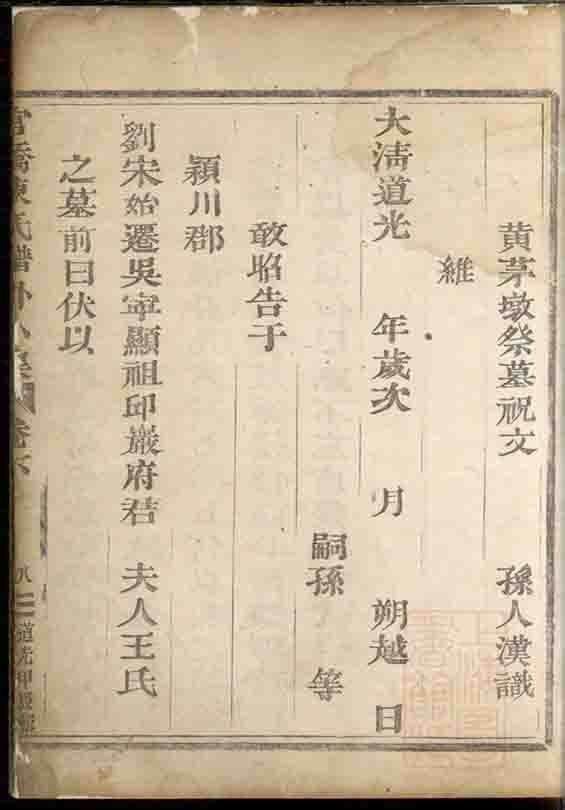 黄茅墩祭墓祝文 孫人漢識
維
大清道光 年歲次 月 朔越 日
嗣孫 等
敢昭告于
潁川郡
劉宋始遷吳寧顯祖印巖府君 夫人王氏
之墓前曰伏以
陳氏譜外 卷
八 道光甲辰